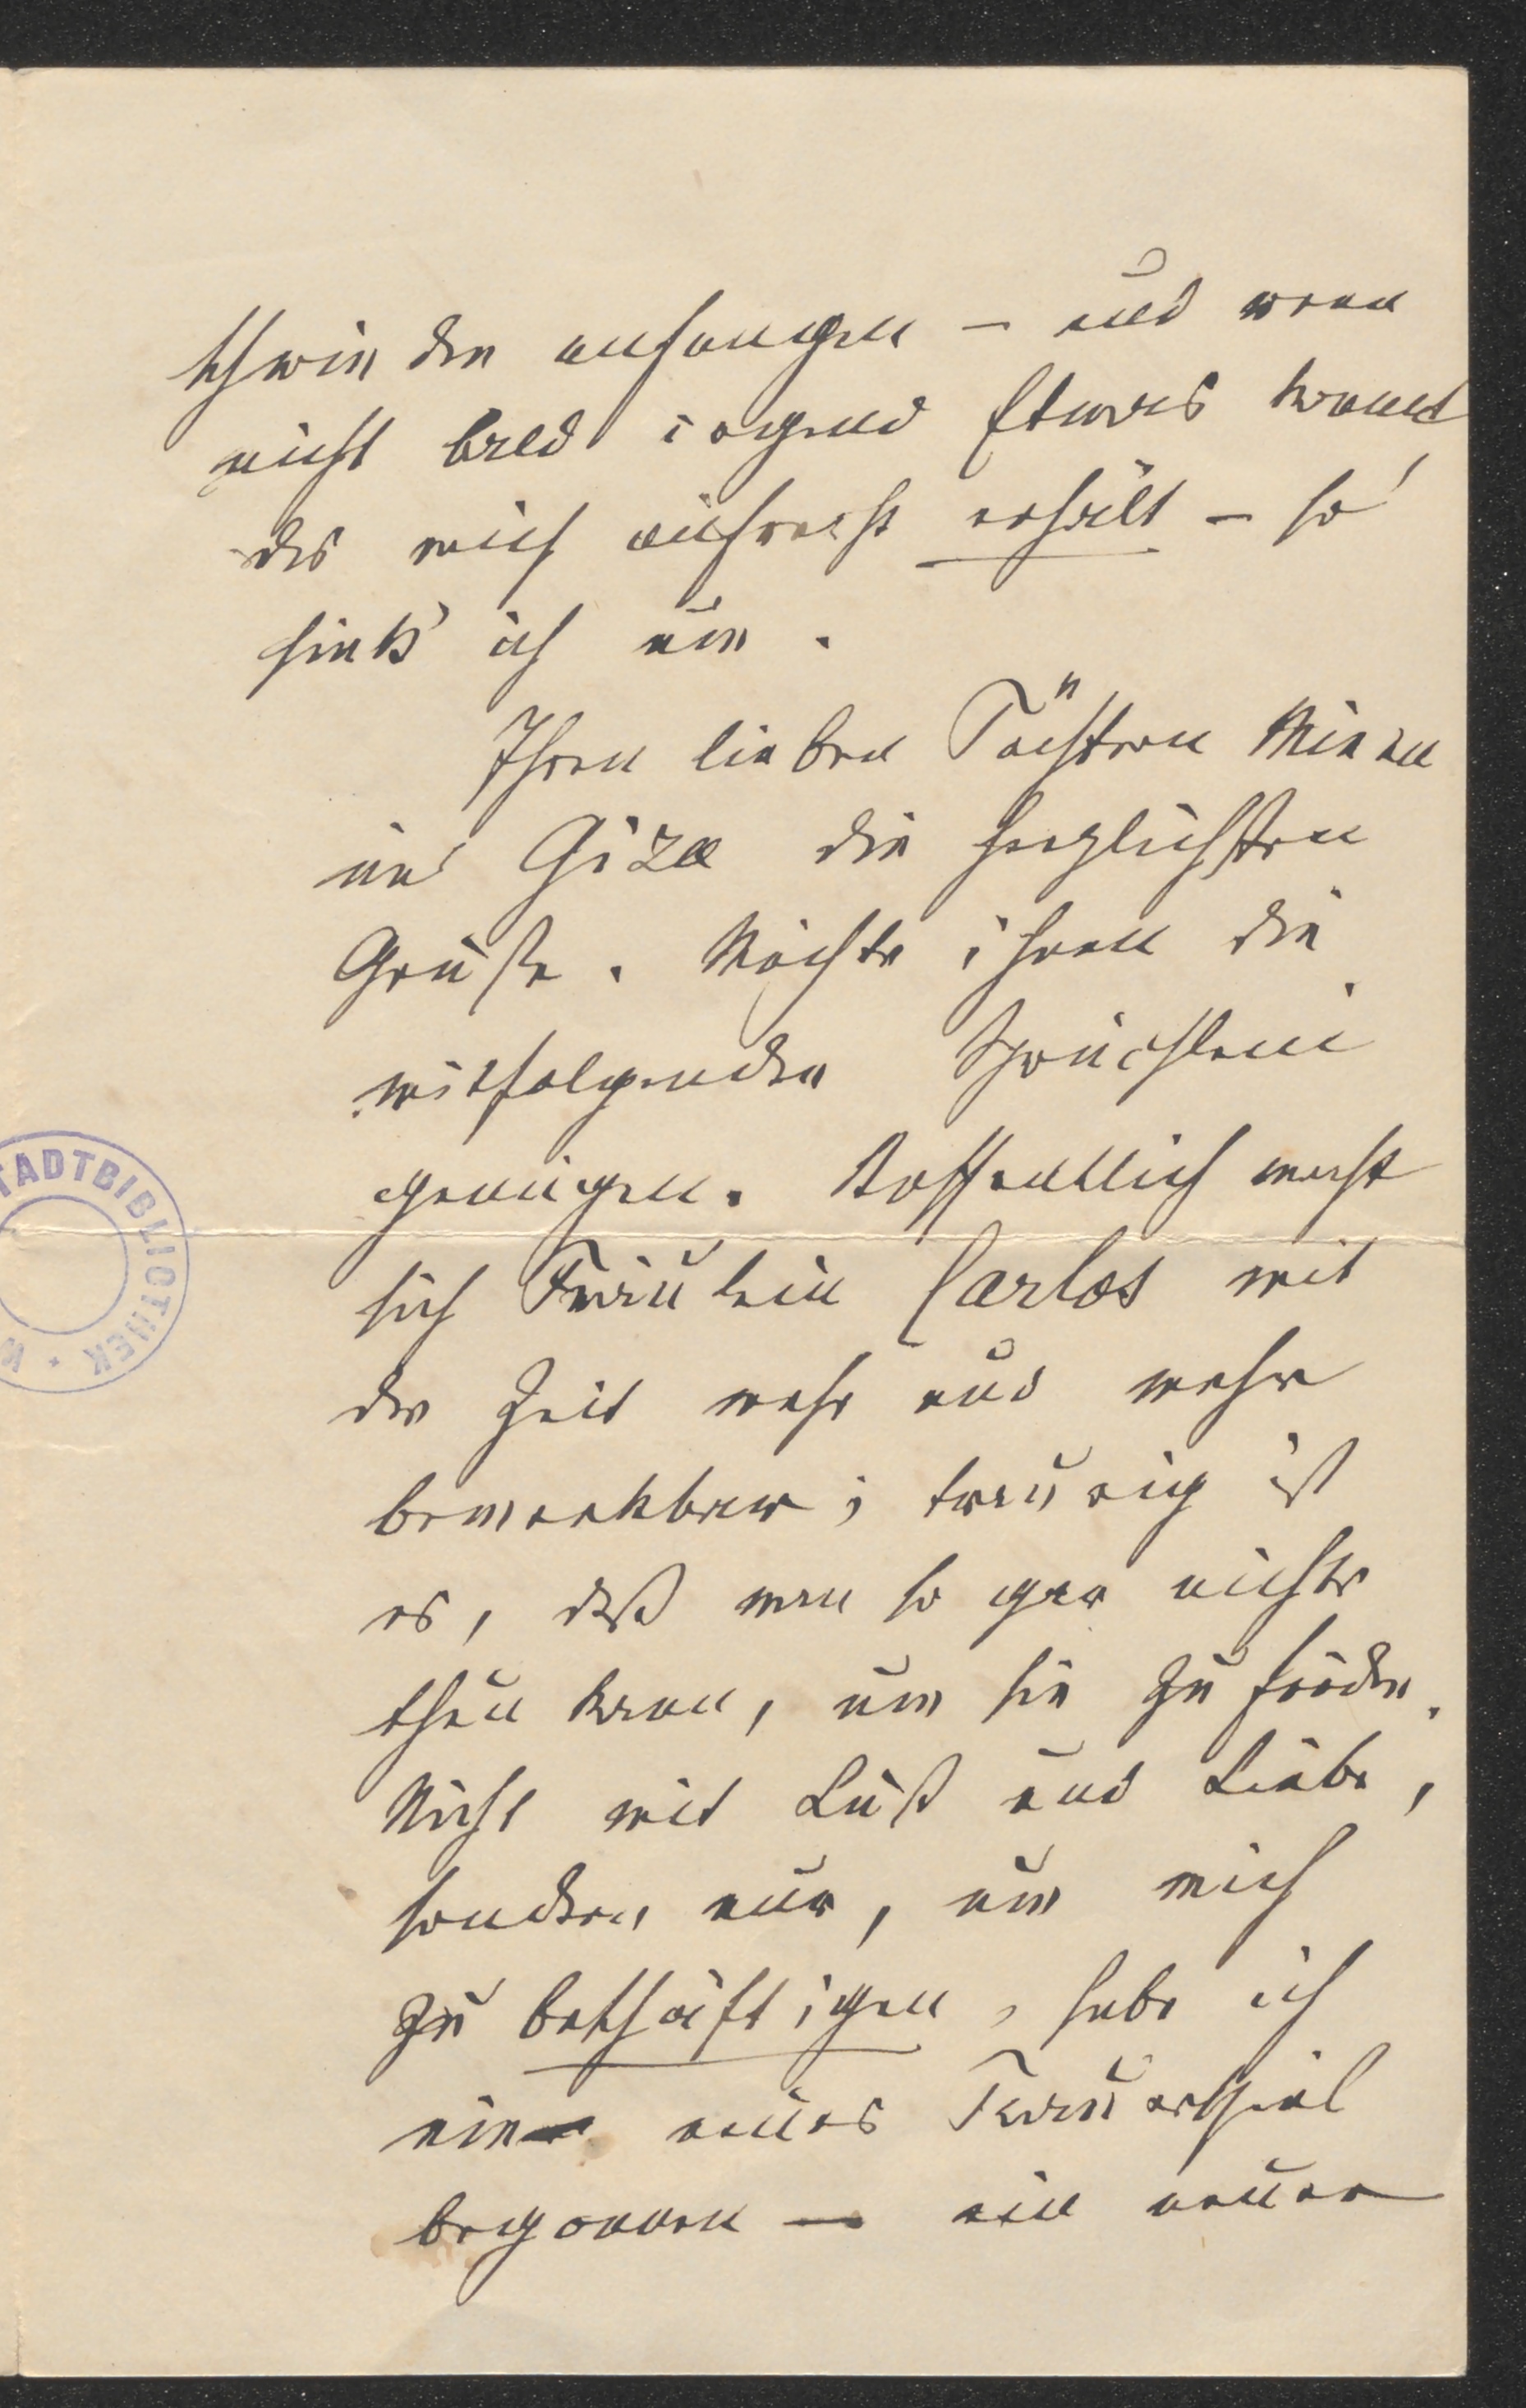 schwinden anfangen – und wenn
nicht bald irgend Etwas kommt
das mich aufrecht erhält – so
sink' ich um.
Ihren lieben Töchtern Minen
und Giza die herzlichsten
Grüße. Möchte ihnen die
mitfolgenden Sprüchlein
genügen. Hoffentlich macht
sich Fräulein Carlos mit
der Zeit mehr und mehr
bemerkbar; traurig ist
es, daß man so gar nichts
thun kann, um sie zu fördern.
Nicht mit Lust und Liebe,
sondern nur, um mich
zu bethätigen, habe ich
ein neues Trauerspiel
begonnen — ein neuer
STADTBIBLIOTHEK